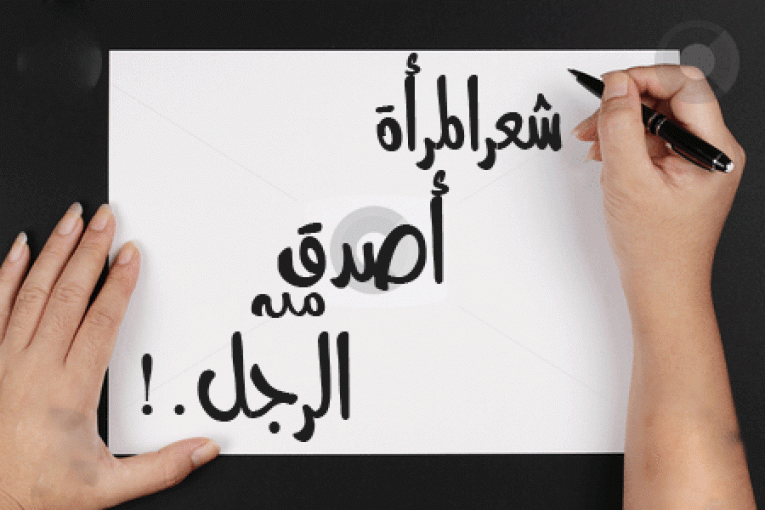 شعر المرأة
أصدق
من
الرجل.!